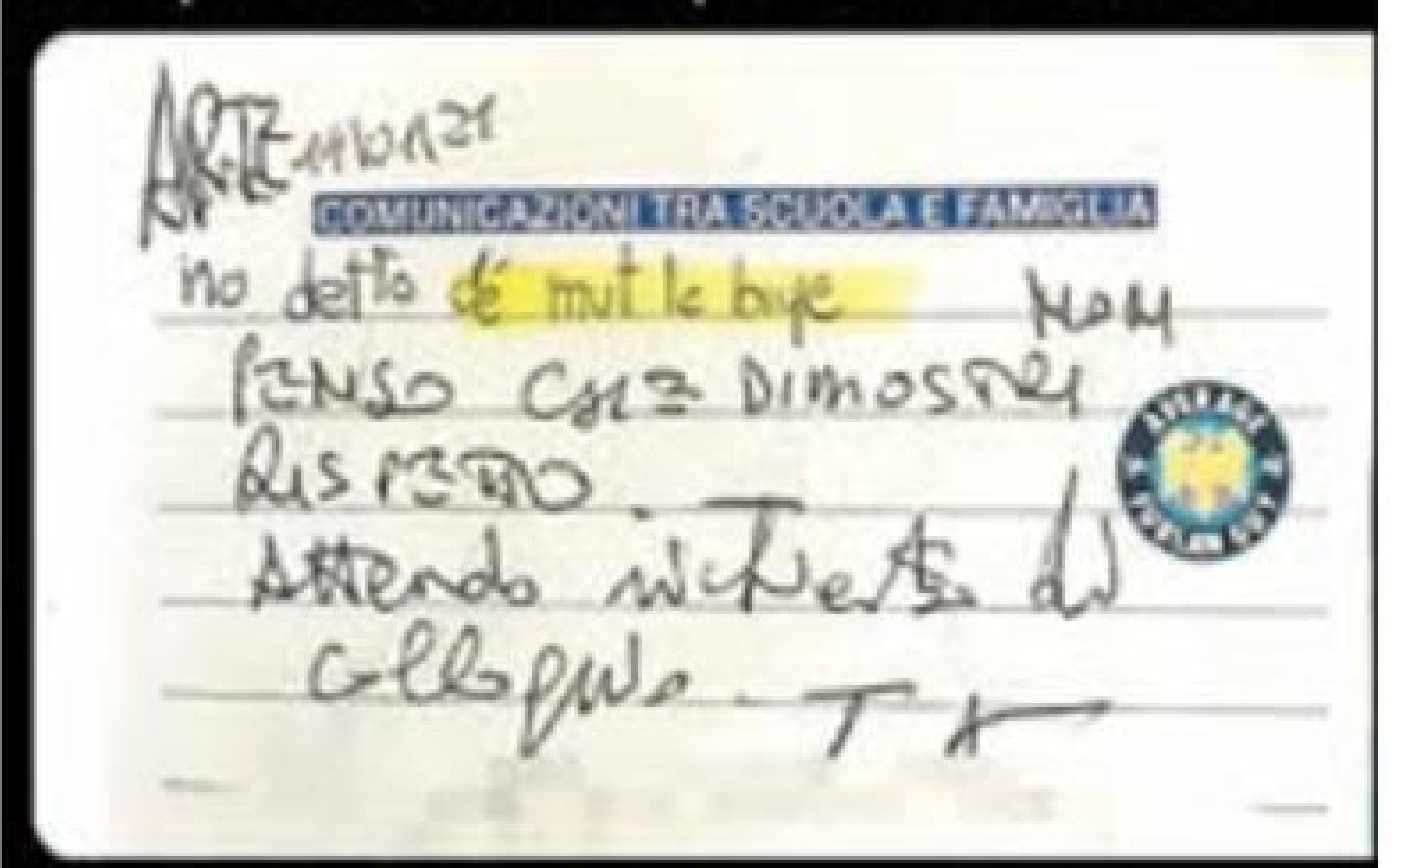 ARTE
COMUNICAZIONI TRA SCUOLA E FAMIGLIA
ho detto dé mut le buge NON
PENSO CHE DIMOSTRI
RISPETTO.
Attendo richiesta di
colloquio.